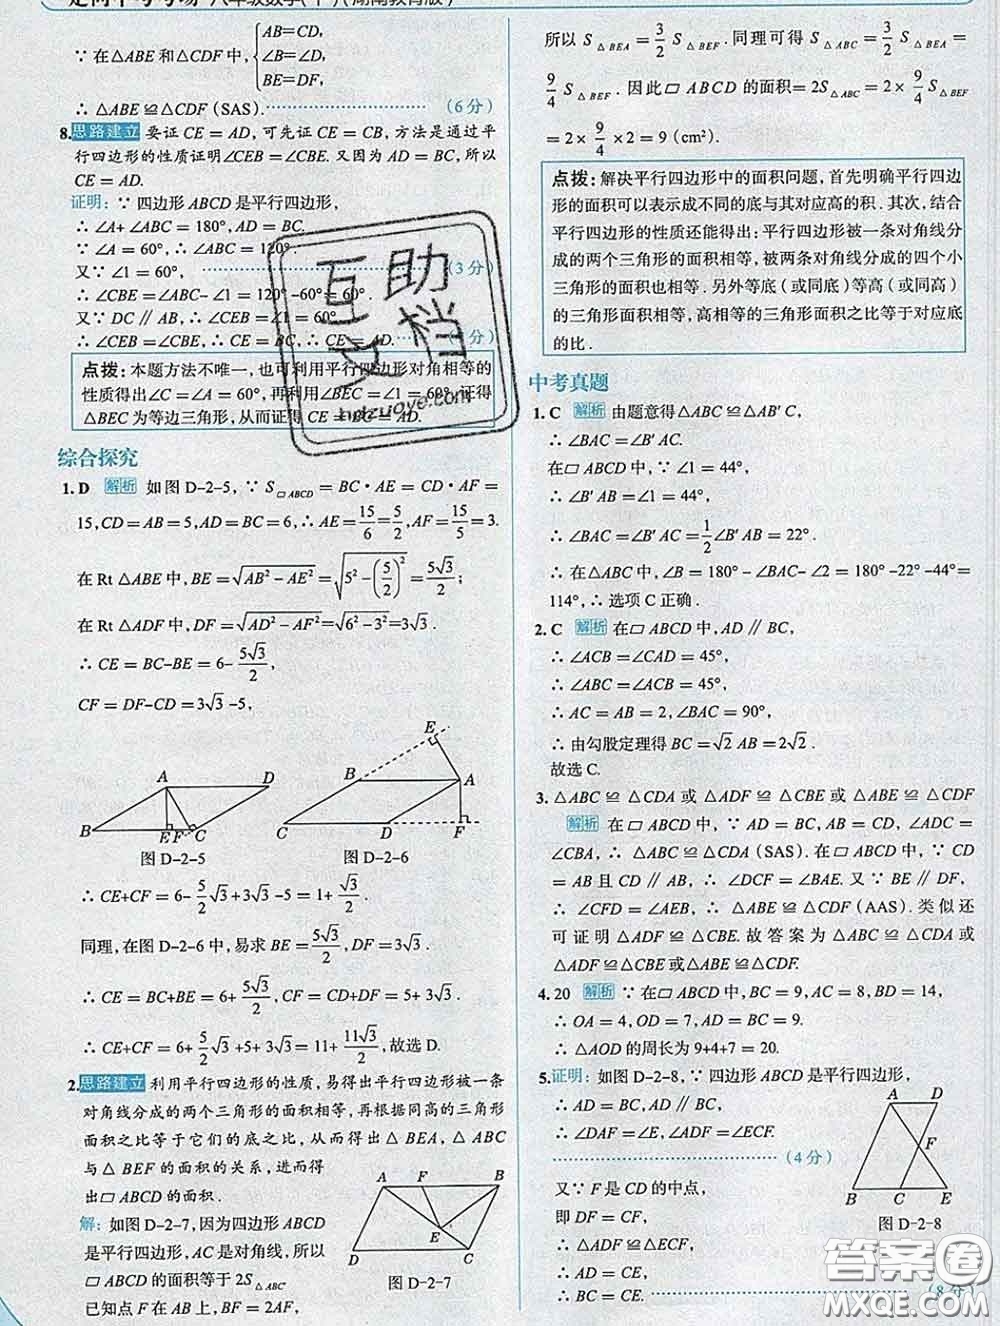 走向中考考场 八年级数学(下)(湖南教育版)
∵ 在△ABE 和△CDF 中, { AB=CD, ∠B=∠D, BE=DF,
∴ △ABE ≌△CDF (SAS). (6 分)
8. 思路建立 要证 CE = AD, 可先证 CE = CB, 方法是通过平
行四边形的性质证明∠CEB =∠CBE. 又因为 AD = BC, 所以
CE = AD.
证明: ∵ 四边形 ABCD 是平行四边形,
∴ ∠A+ ∠ABC = 180°, AD = BC.
∵ ∠A = 60°, ∴ ∠ABC = 120°.
又∵ ∠1 = 60°, (3 分)
∴ ∠CBE =∠ABC- ∠1 = 120° -60° = 60°.
又∵ DC ∥ AB, ∴ ∠CEB =∠1 = 60°.
∴ ∠CEB =∠CBE, ∴ CE = CB, ∴ CE = AD. 分)
点拨: 本题方法不唯一, 也可利用平行四边形对角相等的
性质得出∠C = ∠A = 60°, 再利用∠BEC =∠1 = 60°, 证得
△BEC 为等边三角形, 从而证得 CE = BC = AD.
综合探究
1. D 解析 如图 D-2-5, ∵ S▱ABCD = BC·AE = CD·AF =
15, CD = AB = 5, AD = BC = 6, ∴ AE = 15/6 = 5/2, AF = 15/5 = 3.
在 Rt △ABE 中, BE = √(AB²-AE²) = √(5²-(5/2)²) = 5√3/2;
在 Rt △ADF 中, DF = √(AD²-AF²) = √(6²-3²) = 3√3.
∴ CE = BC-BE = 6- 5√3/2,
CF = DF-CD = 3√3 -5,
A D B E F C
图 D-2-5
E B A C D F
图 D-2-6
∴ CE+CF = 6- 5/2√3 +3√3 -5 = 1+ √3/2.
同理, 在图 D-2-6 中, 易求 BE = 5√3/2, DF = 3√3.
∴ CE = BC+BE = 6+ 5√3/2, CF = CD+DF = 5+ 3√3.
∴ CE+CF = 6+ 5/2√3 +5+ 3√3 = 11+ 11√3/2, 故选 D.
2. 思路建立 利用平行四边形的性质, 易得出平行四边形被一条
对角线分成的两个三角形的面积相等, 再根据同高的三角形
面积之比等于它们的底之比, 从而得出 △ BEA, △ ABC
与 △ BEF 的面积的关系, 进而得
出▱ ABCD 的面积.
解: 如图 D-2-7, 因为四边形 ABCD
是平行四边形, AC 是对角线, 所以
▱ ABCD 的面积等于 2S△ABC.
已知点 F 在 AB 上, BF = 2AF,
A F B E D C
图 D-2-7
所以 S△BEA = 3/2 S△BEF. 同理可得 S△ABC = 3/2 S△BEA =
9/4 S△BEF. 因此▱ ABCD 的面积 = 2S△ABC = 2× 9/4 S△BEF
= 2× 9/4 ×2 = 9 (cm²).
点拨: 解决平行四边形中的面积问题, 首先明确平行四边
形的面积可以表示成不同的底与其对应高的积. 其次, 结合
平行四边形的性质还能得出: 平行四边形被一条对角线分
成的两个三角形的面积相等, 被两条对角线分成的四个小
三角形的面积也相等. 另外等底 (或同底) 等高 (或同高)
的三角形面积相等, 高相等的三角形面积之比等于对应底
的比.
中考真题
1. C 解析 由题意得△ABC ≌△AB′C,
∴ ∠BAC =∠B′AC.
在▱ ABCD 中, ∵ ∠1 = 44°,
∴ ∠B′AB =∠1 = 44°,
∴ ∠BAC =∠B′AC = 1/2 ∠B′AB = 22°.
∴ 在△ABC 中, ∠B = 180° - ∠BAC- ∠2 = 180° -22° -44° =
114°, ∴ 选项 C 正确.
2. C 解析 在▱ ABCD 中, AD ∥ BC,
∴ ∠ACB =∠CAD = 45°,
∴ ∠ABC =∠ACB = 45°,
∴ AC = AB = 2, ∠BAC = 90°,
∴ 由勾股定理得 BC = √2 AB = 2√2.
故选 C.
3. △ABC ≌ △CDA 或 △ADF ≌ △CBE 或 △ABE ≌ △CDF
解析 在▱ ABCD 中, ∵ AD = BC, AB = CD, ∠ADC =
∠CBA, ∴ △ABC ≌ △CDA (SAS). 在▱ ABCD 中, ∵ CD
= AB 且 CD ∥ AB, ∴ ∠DCF = ∠BAE. 又 ∵ BE ∥ DF,
∴ ∠CFD = ∠AEB, ∴ △ABE ≌ △CDF (AAS). 类似还
可证明 △ADF ≌ △CBE. 故答案为 △ABC ≌ △CDA 或
△ADF ≌△CBE 或△ABE ≌△CDF.
4. 20 解析 ∵ 在▱ ABCD 中, BC = 9, AC = 8, BD = 14,
∴ OA = 4, OD = 7, AD = BC = 9.
∴ △AOD 的周长为 9+4+7 = 20.
5. 证明: 如图 D-2-8, ∵ 四边形 ABCD 是平行四边形,
∴ AD = BC, AD ∥ BC,
∴ ∠DAF =∠E, ∠ADF =∠ECF.
(4 分)
又∵ F 是 CD 的中点,
即 DF = CF,
∴ △ADF ≌△ECF,
∴ AD = CE,
∴ BC = CE. (8 分
A D F B C E
图 D-2-8
互助文档
hdzuoye.com
答案圈
MXQE.COM